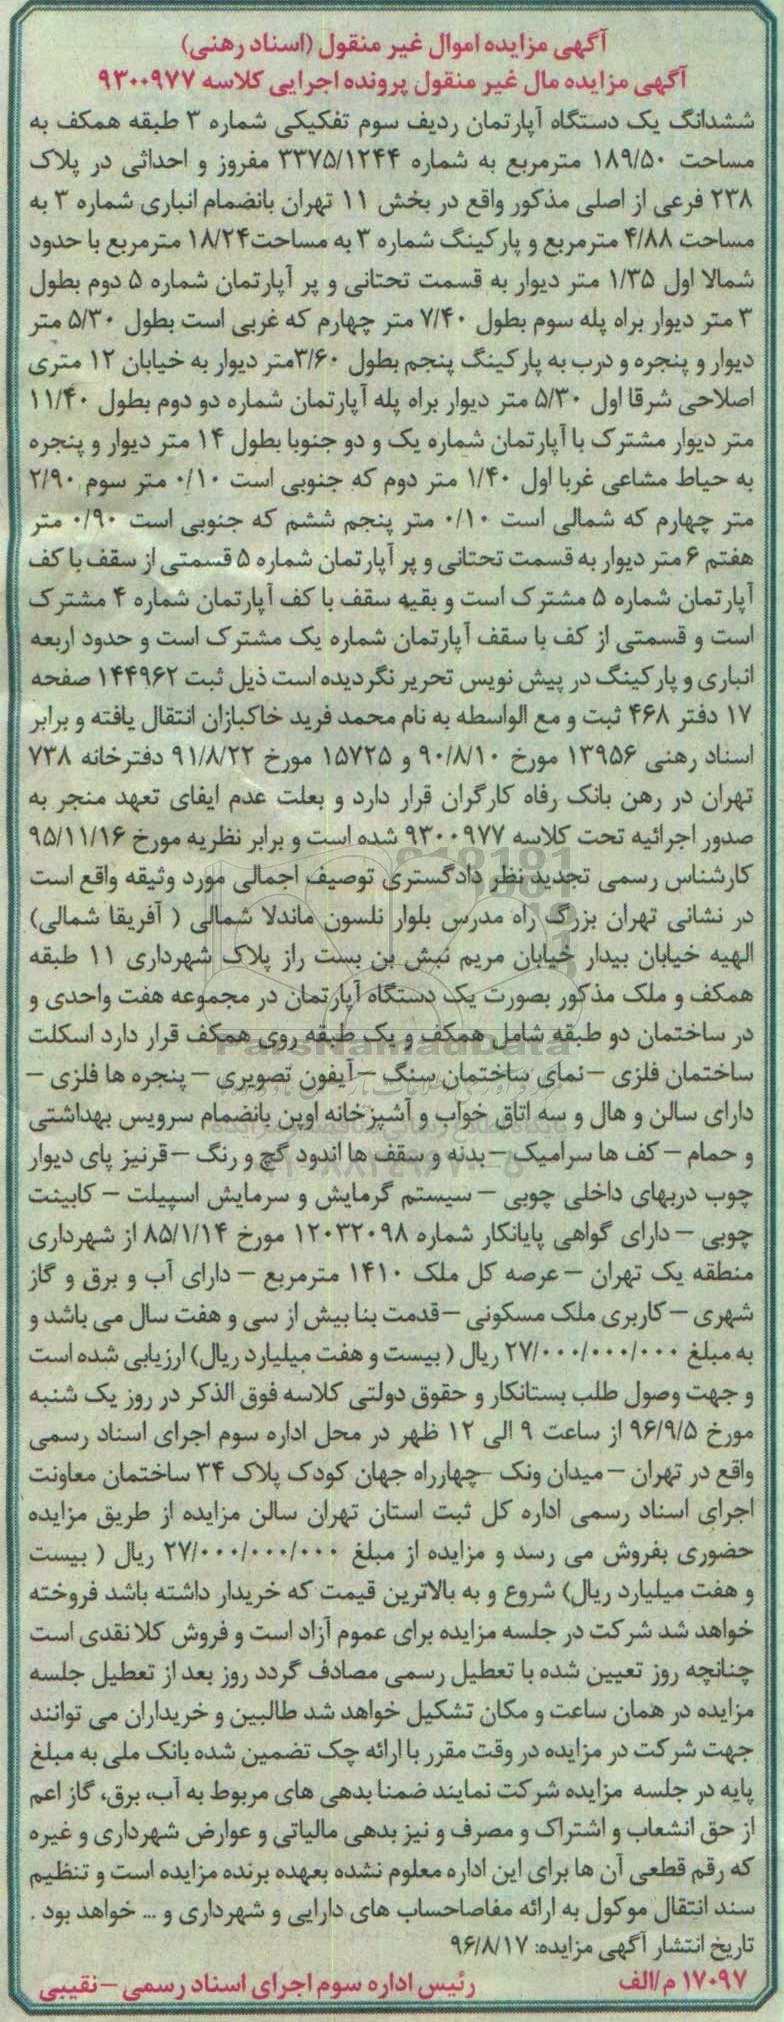 آگهی مزایده اموال غیر منقول (اسناد رهنی)
آگهی مزایده مال غیر منقول پرونده اجرایی کلاسه ۹۳۰۰۹۷۷
ششدانگ یک دستگاه آپارتمان ردیف سوم تفکیکی شماره ۳ طبقه همکف به
مساحت ۱۸۹/۵۰ مترمربع به شماره ۳۳۷۵/۱۲۴۴ مفروز و احداثی در پلاک
۲۳۸ فرعی از اصلی مذکور واقع در بخش ۱۱ تهران بانضمام انباری شماره ۳ به
مساحت ۴/۸۸ مترمربع و پارکینگ شماره ۳ به مساحت۱۸/۲۴ مترمربع با حدود
شمالا اول ۱/۳۵ متر دیوار به قسمت تحتانی و پر آپارتمان شماره ۵ دوم بطول
۳ متر دیوار براه پله سوم بطول ۷/۴۰ متر چهارم که غربی است بطول ۵/۳۰ متر
دیوار و پنجره و درب به پارکینگ پنجم بطول ۳/۶۰متر دیوار به خیابان ۱۲ متری
اصلاحی شرقا اول ۵/۳۰ متر دیوار براه پله آپارتمان شماره دو دوم بطول ۱۱/۴۰
متر دیوار مشترک با آپارتمان شماره یک و دو جنوبا بطول ۱۴ متر دیوار و پنجره
به حیاط مشاعی غربا اول ۱/۴۰ متر دوم که جنوبی است ۰/۱۰ متر سوم ۲/۹۰
متر چهارم که شمالی است ۰/۱۰ متر پنجم ششم که جنوبی است ۰/۹۰ متر
هفتم ۶ متر دیوار به قسمت تحتانی و پر آپارتمان شماره ۵ قسمتی از سقف با کف
آپارتمان شماره ۵ مشترک است و بقیه سقف با کف آپارتمان شماره ۴ مشترک
است و قسمتی از کف با سقف آپارتمان شماره یک مشترک است و حدود اربعه
انباری و پارکینگ در پیش نویس تحریر نگردیده است ذیل ثبت ۱۴۴۹۶۲ صفحه
۱۷ دفتر ۴۶۸ ثبت و مع الواسطه به نام محمد فرید خاکبازان انتقال یافته و برابر
اسناد رهنی ۱۳۹۵۶ مورخ ۹۰/۸/۱۰ و ۱۵۷۲۵ مورخ ۹۱/۸/۲۲ دفترخانه ۷۳۸
تهران در رهن بانک رفاه کارگران قرار دارد و بعلت عدم ایفای تعهد منجر به
صدور اجرائیه تحت کلاسه ۹۳۰۰۹۷۷ شده است و برابر نظریه مورخ ۹۵/۱۱/۱۶
کارشناس رسمی تجدید نظر دادگستری توصیف اجمالی مورد وثیقه واقع است
در نشانی تهران بزرگ راه مدرس بلوار نلسون ماندلا شمالی ( آفریقا شمالی)
الهیه خیابان بیدار خیابان مریم نبش بن بست راز پلاک شهرداری ۱۱ طبقه
همکف و ملک مذکور بصورت یک دستگاه آپارتمان در مجموعه هفت واحدی و
در ساختمان دو طبقه شامل همکف و یک طبقه روی همکف قرار دارد اسکلت
ساختمان فلزی –نمای ساختمان سنگ –آیفون تصویری – پنجره ها فلزی –
دارای سالن و هال و سه اتاق خواب و آشپزخانه اوپن بانضمام سرویس بهداشتی
و حمام – کف ها سرامیک –بدنه و سقف ها اندود گچ و رنگ –قرنیز پای دیوار
چوب دربهای داخلی چوبی – سیستم گرمایش و سرمایش اسپیلت – کابینت
چوبی – دارای گواهی پایانکار شماره ۱۲۰۳۲۰۹۸ مورخ ۸۵/۱/۱۴ از شهرداری
منطقه یک تهران – عرصه کل ملک ۱۴۱۰ مترمربع – دارای آب و برق و گاز
شهری – کاربری ملک مسکونی –قدمت بنا بیش از سی و هفت سال می باشد و
به مبلغ ۲۷/۰۰۰/۰۰۰/۰۰۰ ریال ( بیست و هفت میلیارد ریال) ارزیابی شده است
و جهت وصول طلب بستانکار و حقوق دولتی کلاسه فوق الذکر در روز یک شنبه
مورخ ۹۶/۹/۵ از ساعت ۹ الی ۱۲ ظهر در محل اداره سوم اجرای اسناد رسمی
واقع در تهران – میدان ونک –چهارراه جهان کودک پلاک ۳۴ ساختمان معاونت
اجرای اسناد رسمی اداره کل ثبت استان تهران سالن مزایده از طریق مزایده
حضوری بفروش می رسد و مزایده از مبلغ ۲۷/۰۰۰/۰۰۰/۰۰۰ ریال ( بیست
و هفت میلیارد ریال) شروع و به بالاترین قیمت که خریدار داشته باشد فروخته
خواهد شد شرکت در جلسه مزایده برای عموم آزاد است و فروش کلا نقدی است
چنانچه روز تعیین شده با تعطیل رسمی مصادف گردد روز بعد از تعطیل جلسه
مزایده در همان ساعت و مکان تشکیل خواهد شد طالبین و خریداران می توانند
جهت شرکت در مزایده در وقت مقرر با ارائه چک تضمین شده بانک ملی به مبلغ
پایه در جلسه مزایده شرکت نمایند ضمنا بدهی های مربوط به آب، برق، گاز اعم
از حق انشعاب و اشتراک و مصرف و نیز بدهی مالیاتی و عوارض شهرداری و غیره
که رقم قطعی آن ها برای این اداره معلوم نشده بعهده برنده مزایده است و تنظیم
سند انتقال موکول به ارائه مفاصاحساب های دارایی و شهرداری و ... خواهد بود .
تاریخ انتشار آگهی مزایده: ۹۶/۸/۱۷
۱۷۰۹۷ م/الف رئیس اداره سوم اجرای اسناد رسمی –نقیبی